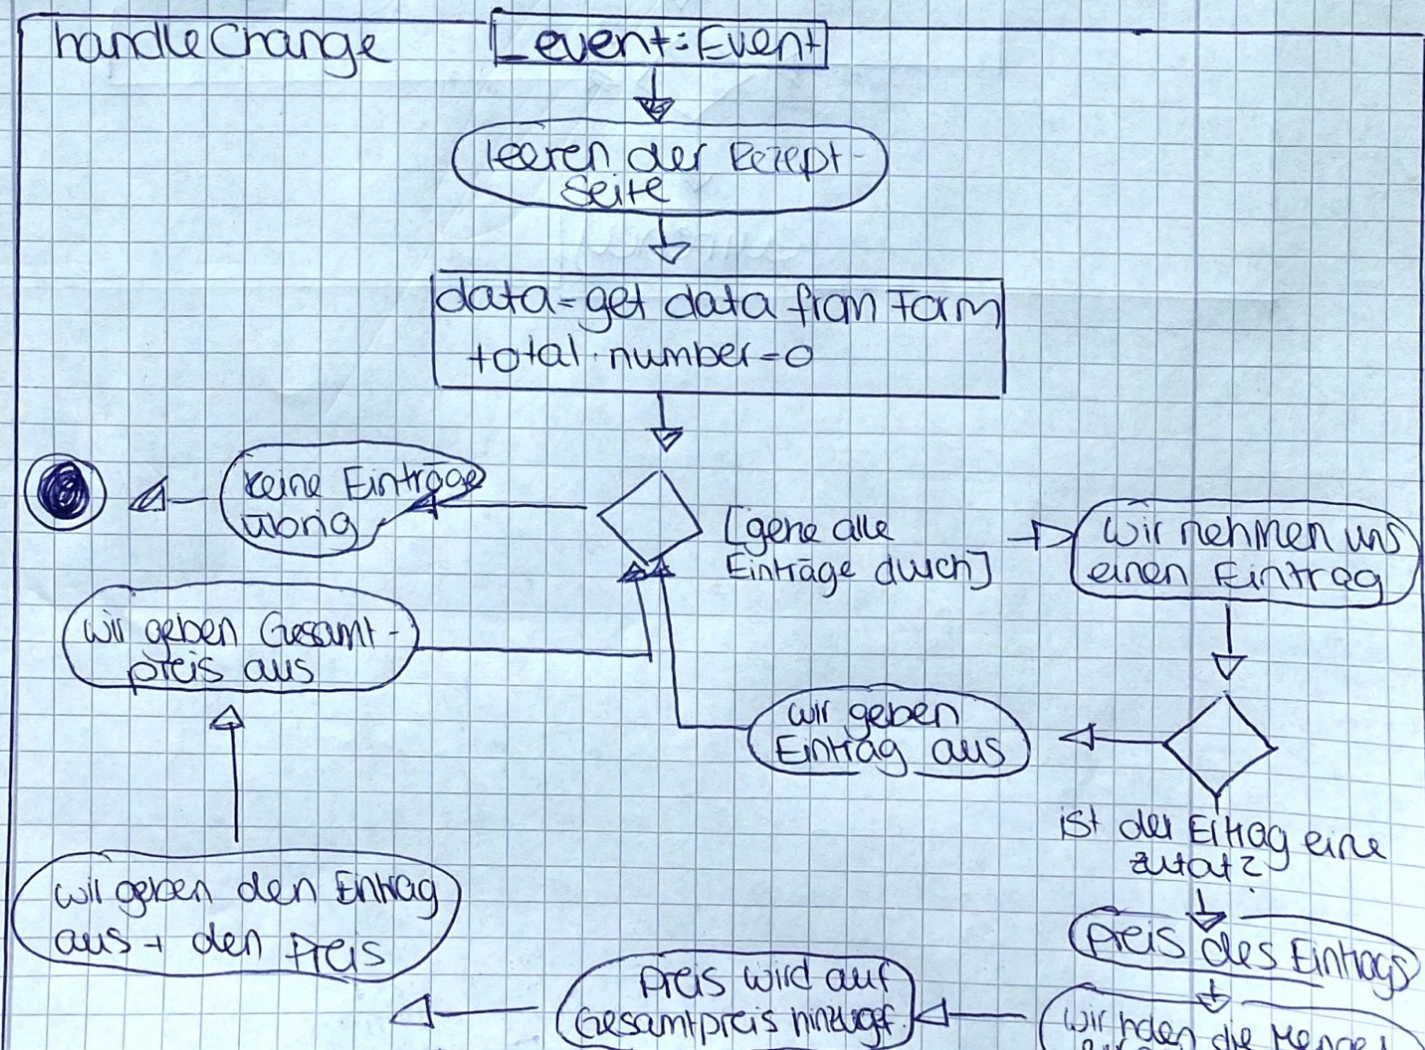 handleChange
event: Event
leeren der Rezept-
Seite
data=get data from Form
total number=0
keine Einträge
übrig
[gehe alle
Einträge durch]
wir nehmen uns
einen Eintrag
wir geben Gesamt-
preis aus
wir geben
Eintrag aus
ist der Eitrag eine
Zutat?
wir geben den Eintrag
aus + den Preis
Preis des Eintrags
Preis wird auf
Gesamtpreis hinzugef.
wir holen die Menge